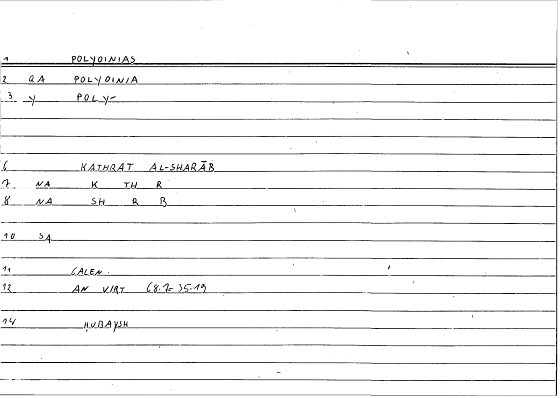 1 POLYOINIAS
2 QA POLYOINIA
3 Y POLY-
6 KATHRAT AL-SHARĀB
7 NA K TH R
8 NA SH R B
10 SA
11 GALEN
12 AN VIRT 68.7= 35.19
14 ḤUBAYSH